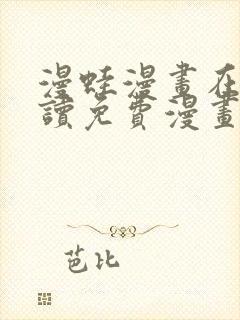 漫蛙漫畫在
讀免費漫畫
芭比